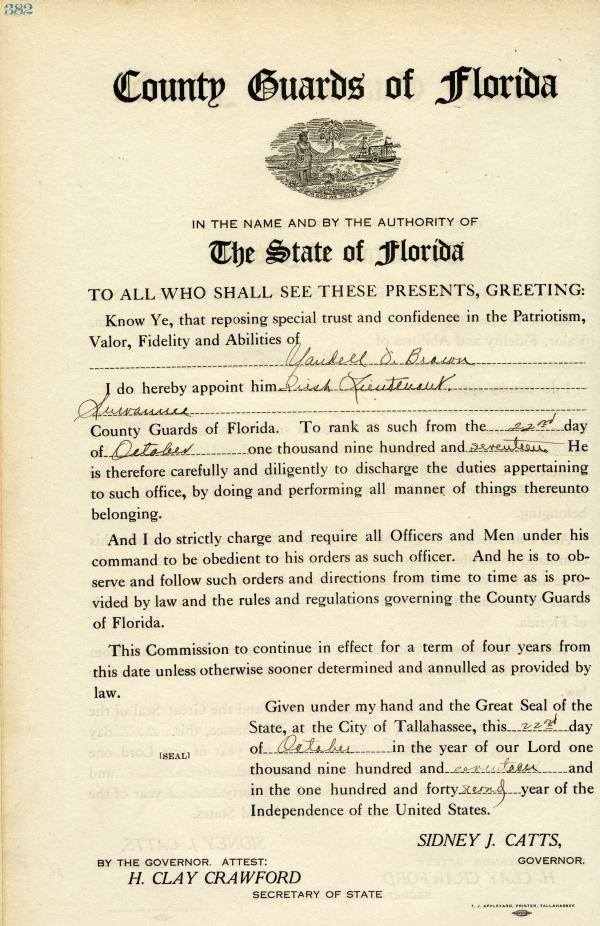 382
County Guards of Florida
IN GOD WE TRUST
IN THE NAME AND BY THE AUTHORITY OF
The State of Florida
TO ALL WHO SHALL SEE THESE PRESENTS, GREETING:
Know Ye, that reposing special trust and confidenee in the Patriotism,
Valor, Fidelity and Abilities of
Yandell S. Brown
I do hereby appoint him First Lieutenant.
Suwannee
County Guards of Florida. To rank as such from the 22nd day
of October one thousand nine hundred and seventeen He
is therefore carefully and diligently to discharge the duties appertaining
to such office, by doing and performing all manner of things thereunto
belonging.
And I do strictly charge and require all Officers and Men under his
command to be obedient to his orders as such officer. And he is to ob-
serve and follow such orders and directions from time to time as is pro-
vided by law and the rules and regulations governing the County Guards
of Florida.
This Commission to continue in effect for a term of four years from
this date unless otherwise sooner determined and annulled as provided by
law.
Given under my hand and the Great Seal of the
State, at the City of Tallahassee, this 22nd day
of October in the year of our Lord one
[SEAL]
thousand nine hundred and seventeen and
in the one hundred and forty second year of the
Independence of the United States.
SIDNEY J. CATTS,
GOVERNOR.
BY THE GOVERNOR. ATTEST:
H. CLAY CRAWFORD
SECRETARY OF STATE
T. J. APPLEYARD, PRINTER, TALLAHASSEE